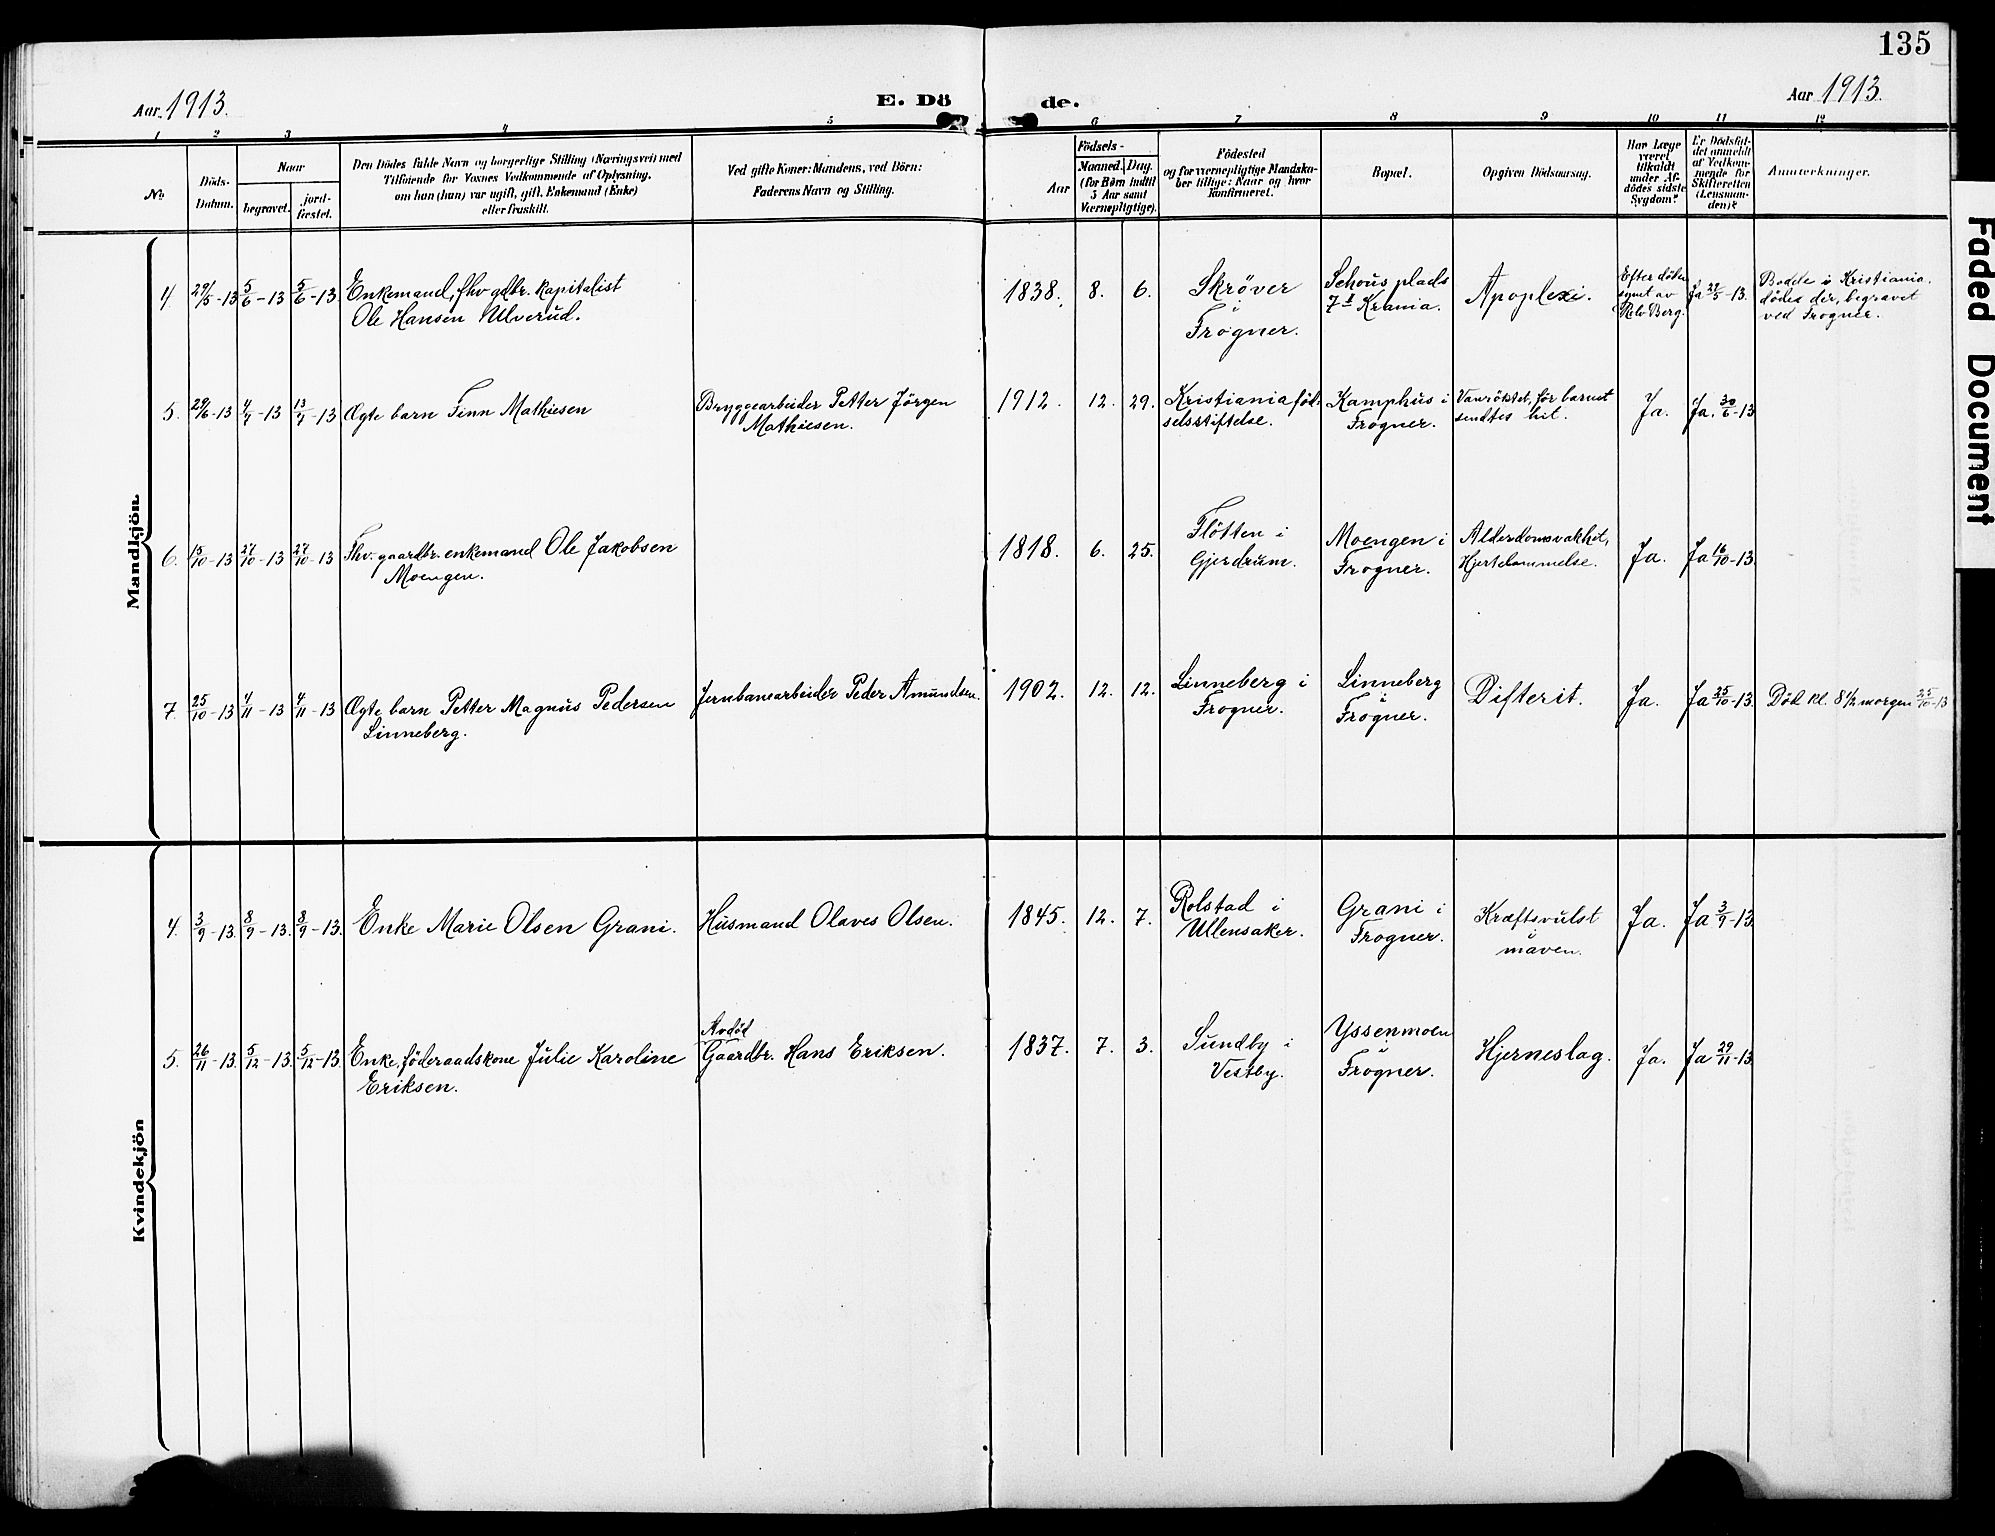 135
Aar 1913.
E. Dö de.
Aar 1913.
1 2 3 4 5 6 7 8 9 10 11 12
No.
Döds-
Datum.
Naar
begravet.
jord-
fæstet.
Den Dödes fulde Navn og borgerlige Stilling (Næringsvei) med
Tilföiende for Voxnes Vedkommende af Oplysning,
om han (hun) var ugift, gift, Enkemand (Enke)
eller fraskilt.
Ved gifte Koner: Mandens, ved Börn:
Faderens Navn og Stilling.
Födsels-
Aar
Maaned. Dag.
(for Børn indtil
5 Aar samt
Værnepligtige).
Födested
og for værnepligtige Mandska-
ber tillige: Naar og hvor
konfirmeret.
Bopæl.
Opgiven Dödsaarsag.
Har Læge
været
tilkaldt
under Af-
dödes sidste
Sygdom?
Er Dödsfal-
det anmeldt
af Vedkom-
mende for
Skifteretten
(Lensman-
den)?
Anmærkninger.
Mandkjön
4. 29/5-13 5/6-13 5/6-13 Enkemand, fhv gdbr. kapitalist
Ole Hansen Ulverud.
1838. 8. 6. Skrøver
i
Frogner.
Schous plads
7 I Krania.
Apoplexi.
Efter døds-
synet av
Berg.
Ja 29/5-13.
Bodde i Kristiania.
dødes der, begravet
ved Frogner.
5. 29/6-13 4/7-13 13/7-13 Ægte barn Finn Mathiesen
Bryggearbeider Petter Jørgen
Mathiesen.
1912. 12. 29. Kristiania fød-
selsstiftelse.
Kamphus i
Frogner.
Vanrøktet, før barnet
sendtes hit.
Ja. Ja. 30/6-13
6. 15/10-13 27/10-13 27/10-13 Fhv. gaardbr. enkemand Ole Jakobsen
Moengen.
1818. 6. 25. Fløtten i
Gjerdrum.
Moengen i
Frogner.
Alderdomsvakhet,
Hjertelammelse.
Ja. Ja 16/10-13.
7. 25/10-13 4/11-13 4/11-13 Ægte barn Petter Magnus Pedersen
Linneberg.
Jernbanearbeider Peder Amundsen.
1902. 12. 12. Linneberg i
Frogner.
Linneberg
i
Frogner.
Difterit. Ja. Ja 25/10-13. Død kl. 8 1/2 morgen 25/10-13
Kvindekjön
4. 3/9-13. 8/9-13. 8/9-13. Enke Marie Olsen Grani. Husmand Olaves Olsen.
1845. 12. 7. Rolstad i
Ullensaker.
Grani i
Frogner.
Kræftsvulst
i
maven.
Ja. Ja 3/9-13.
5. 26/11-13. 5/12-13. 5/12-13. Enke, føderaadskone Julie Karoline
Eriksen.
Avdød
Gaardbr. Hans Eriksen.
1837. 7. 3. Sundby i
Vestby.
Yssenmoen
i
Frogner.
Hjerneslag. Ja. Ja 29/11-13.
Faded Document